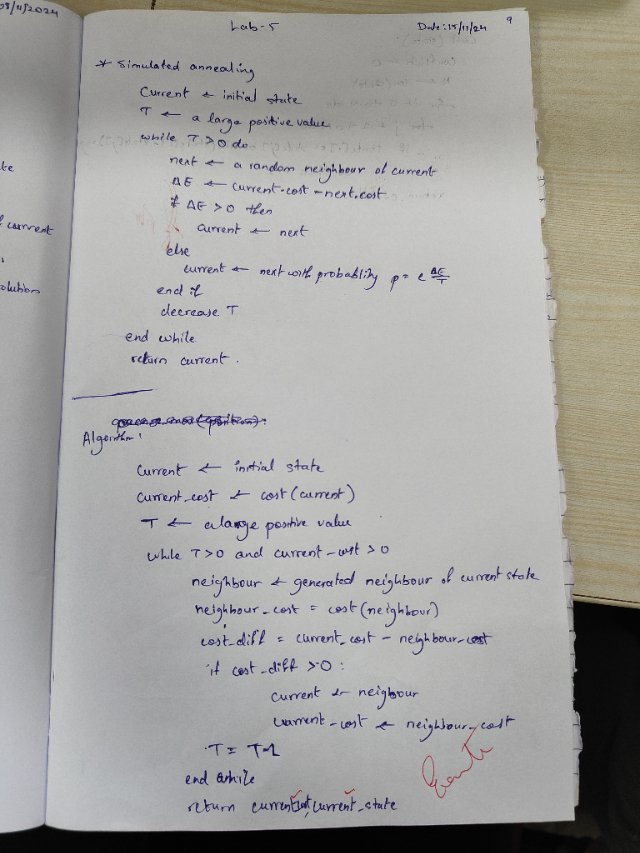 08/11/2024
te
f current
solution
Lab-5
Date: 15/11/24
9
* Simulated annealing
Current ← initial state
T ← a large positive value
while T>0 do
next ← a random neighbour of current
ΔE ← current.cost - next.cost
if ΔE > 0 then
current ← next
else
current ← next with probablity p = e^ΔE/T
end if
decrease T
end while
return current.
Algorithm:
Current ← initial state
Current_cost ← cost(current)
T ← a large positive value
while T>0 and current_cost >0
neighbour ← generated neighbour of current state
neighbour_cost = cost(neighbour)
cost_diff = current_cost - neighbour_cost
if cost_diff >0:
current ← neighbour
current_cost ← neighbour_cost
T = T-1
end while
return current_cost, current_state